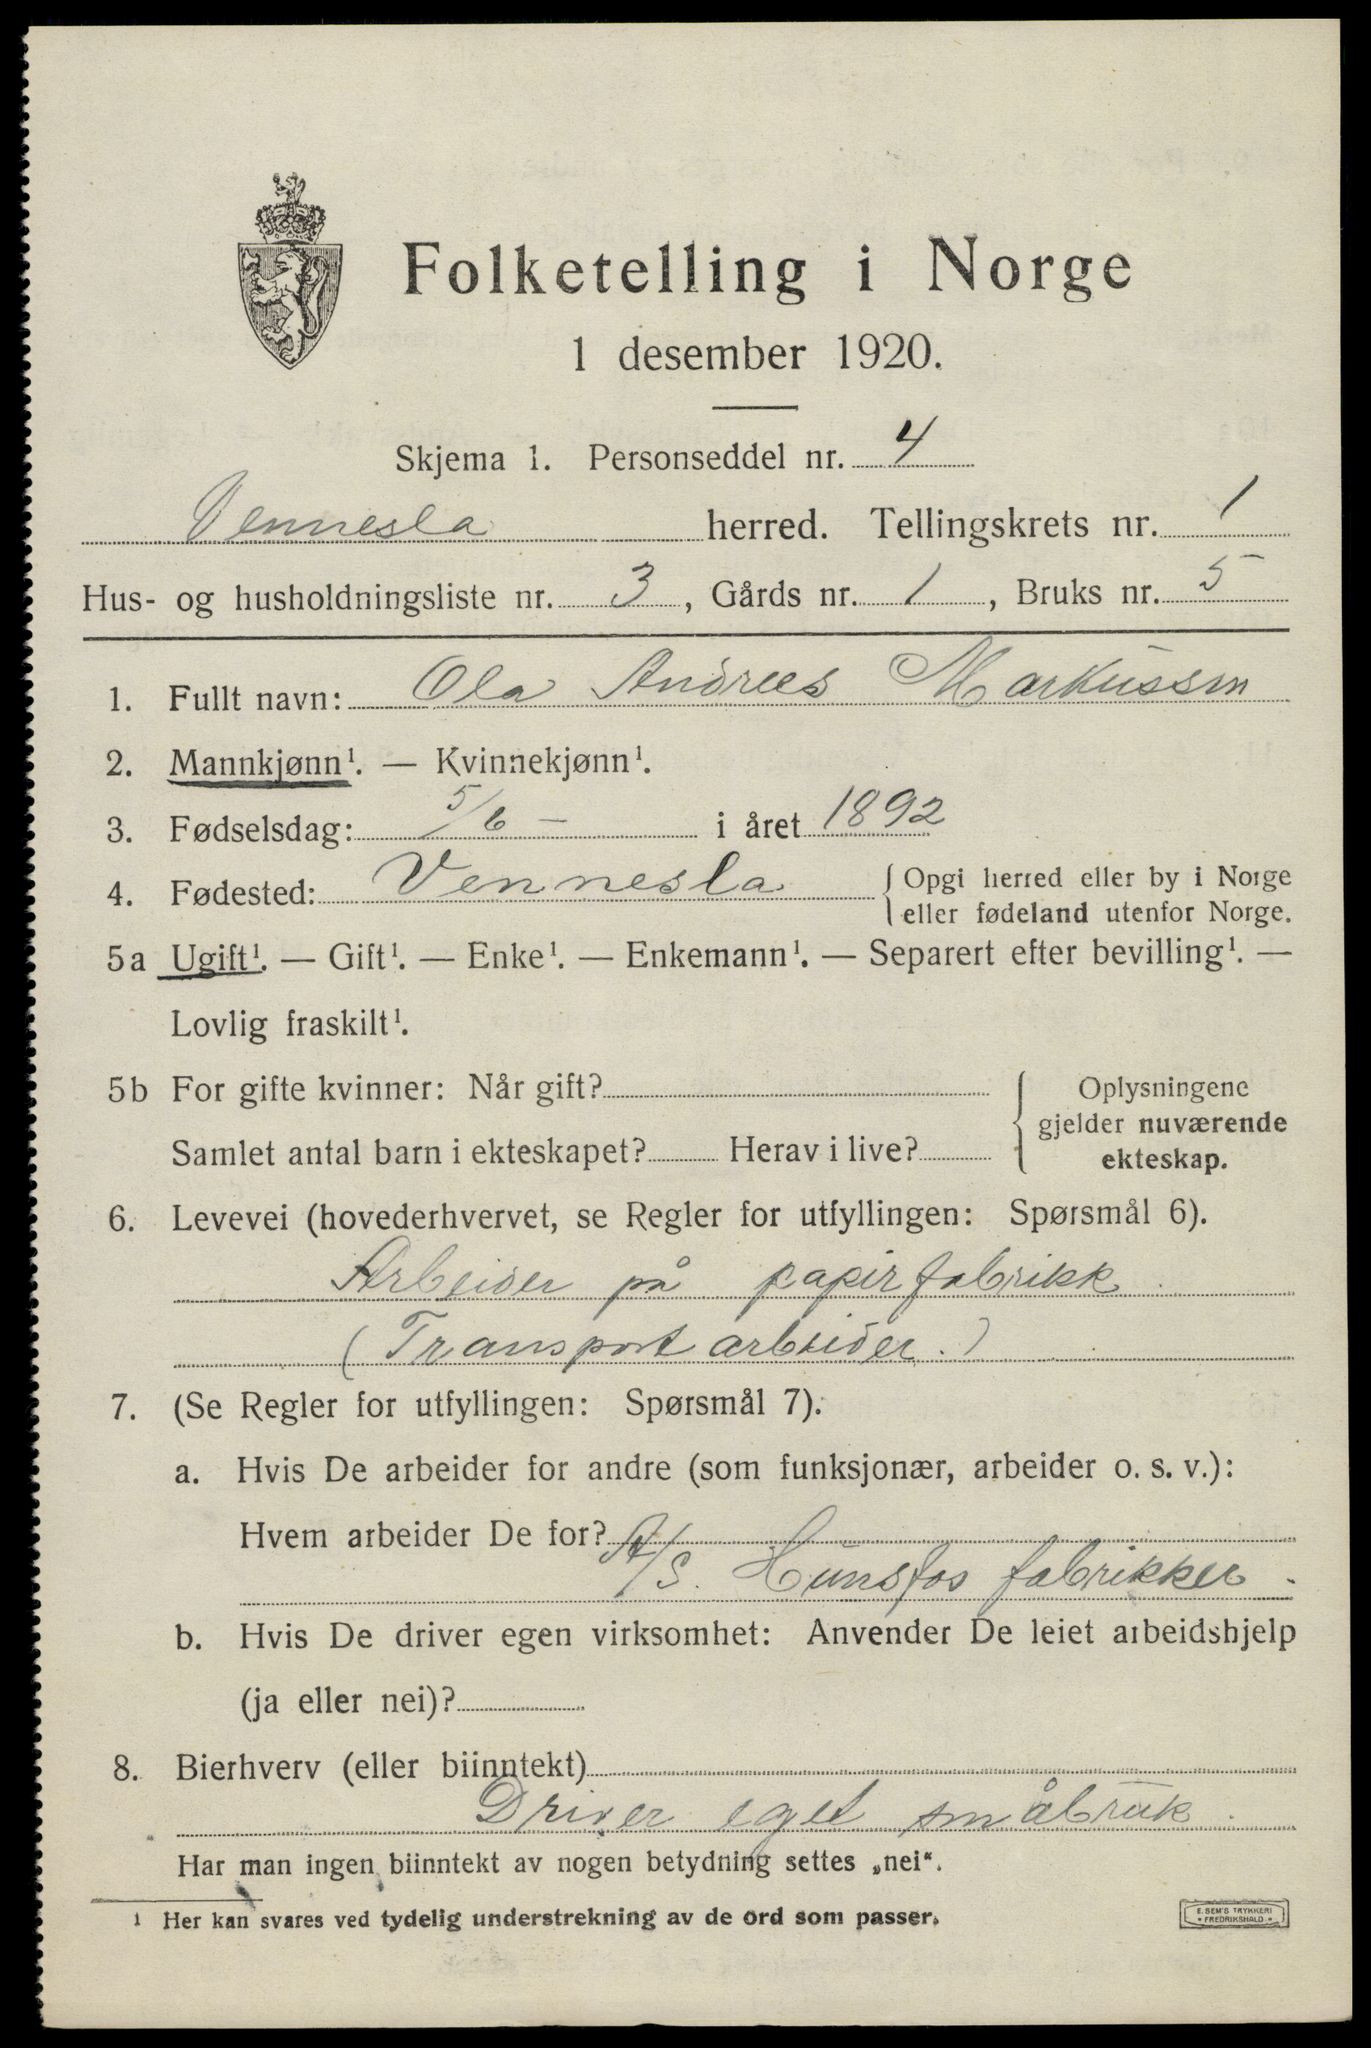 Folketelling i Norge
1 desember 1920.
Skjema 1. Personseddel nr. 4
Vennesla herred. Tellingskrets nr. 1
Hus- og husholdningsliste nr. 3, Gårds nr. 1, Bruks nr. 5
1. Fullt navn: Ola Andreas Markussen
2. Mannkjønn¹. — Kvinnekjønn¹.
3. Fødselsdag: 5/6 - i året 1892
4. Fødested: Vennesla { Opgi herred eller by i Norge
eller fødeland utenfor Norge.
5a Ugift¹. — Gift¹. — Enke¹. — Enkemann¹. — Separert efter bevilling¹. —
Lovlig fraskilt¹.
5b For gifte kvinner: Når gift? { Oplysningene
gjelder nuværende
Samlet antal barn i ekteskapet? Herav i live? ekteskap.
6. Levevei (hovederhvervet, se Regler for utfyllingen: Spørsmål 6).
Arbeider på papirfabrikk.
(Transportarbeider.)
7. (Se Regler for utfyllingen: Spørsmål 7).
a. Hvis De arbeider for andre (som funksjonær, arbeider o. s. v.):
Hvem arbeider De for?
A/S. Hunsfos fabrikker.
b. Hvis De driver egen virksomhet: Anvender De leiet arbeidshjelp
(ja eller nei)?
8. Bierhverv (eller biinntekt)
Driver eget småbruk.
Har man ingen biinntekt av nogen betydning settes „nei“.
¹ Her kan svares ved tydelig understrekning av de ord som passer.
E. SEM'S TRYKKERI
* FREDRIKSHALD. *